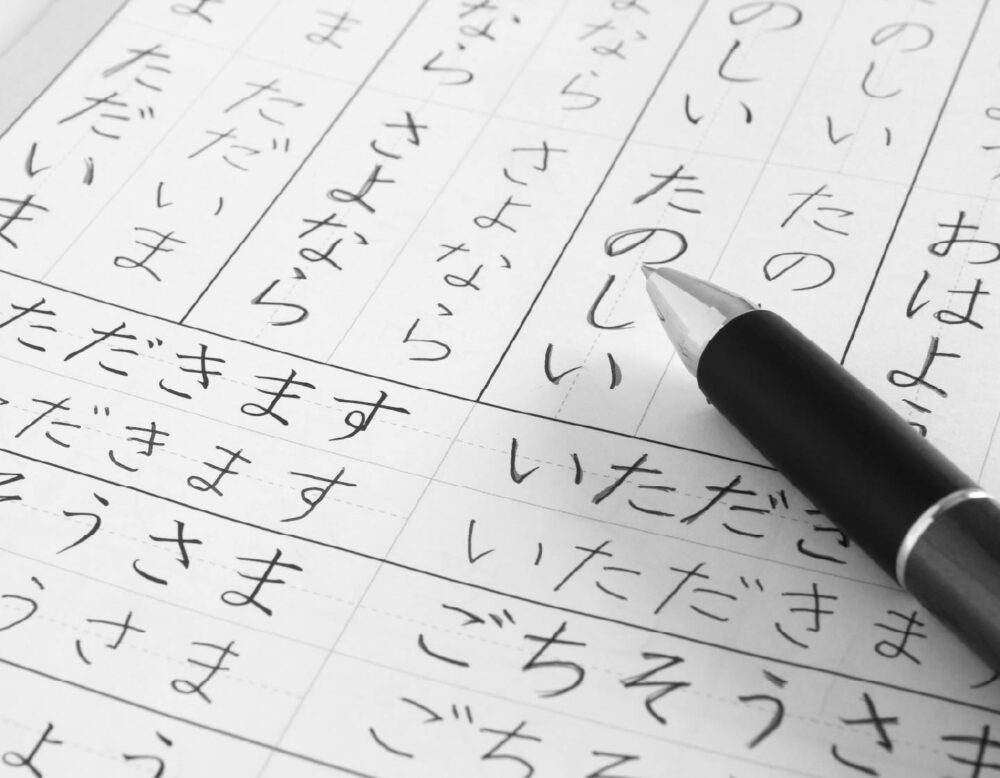 おはよう
のしい たの
のしい たのしい
なら さよなら
なら さよなら
ま ただいま
ま ただいま
ただきます いただき
だきます いただきま
そうさま ごちそうさま
うさま ごちそ
よう